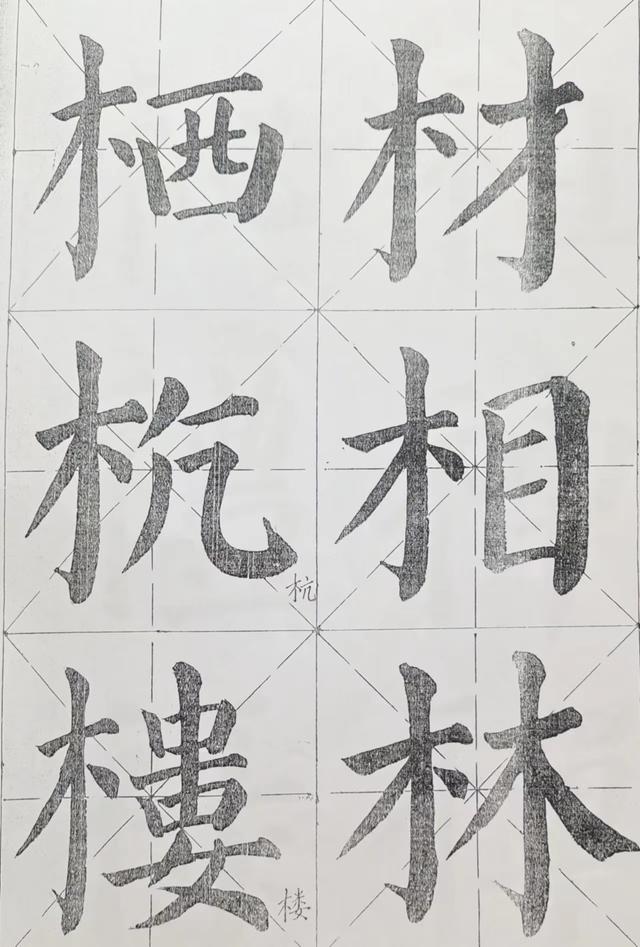 材相林
栖杭樓
杭
楼